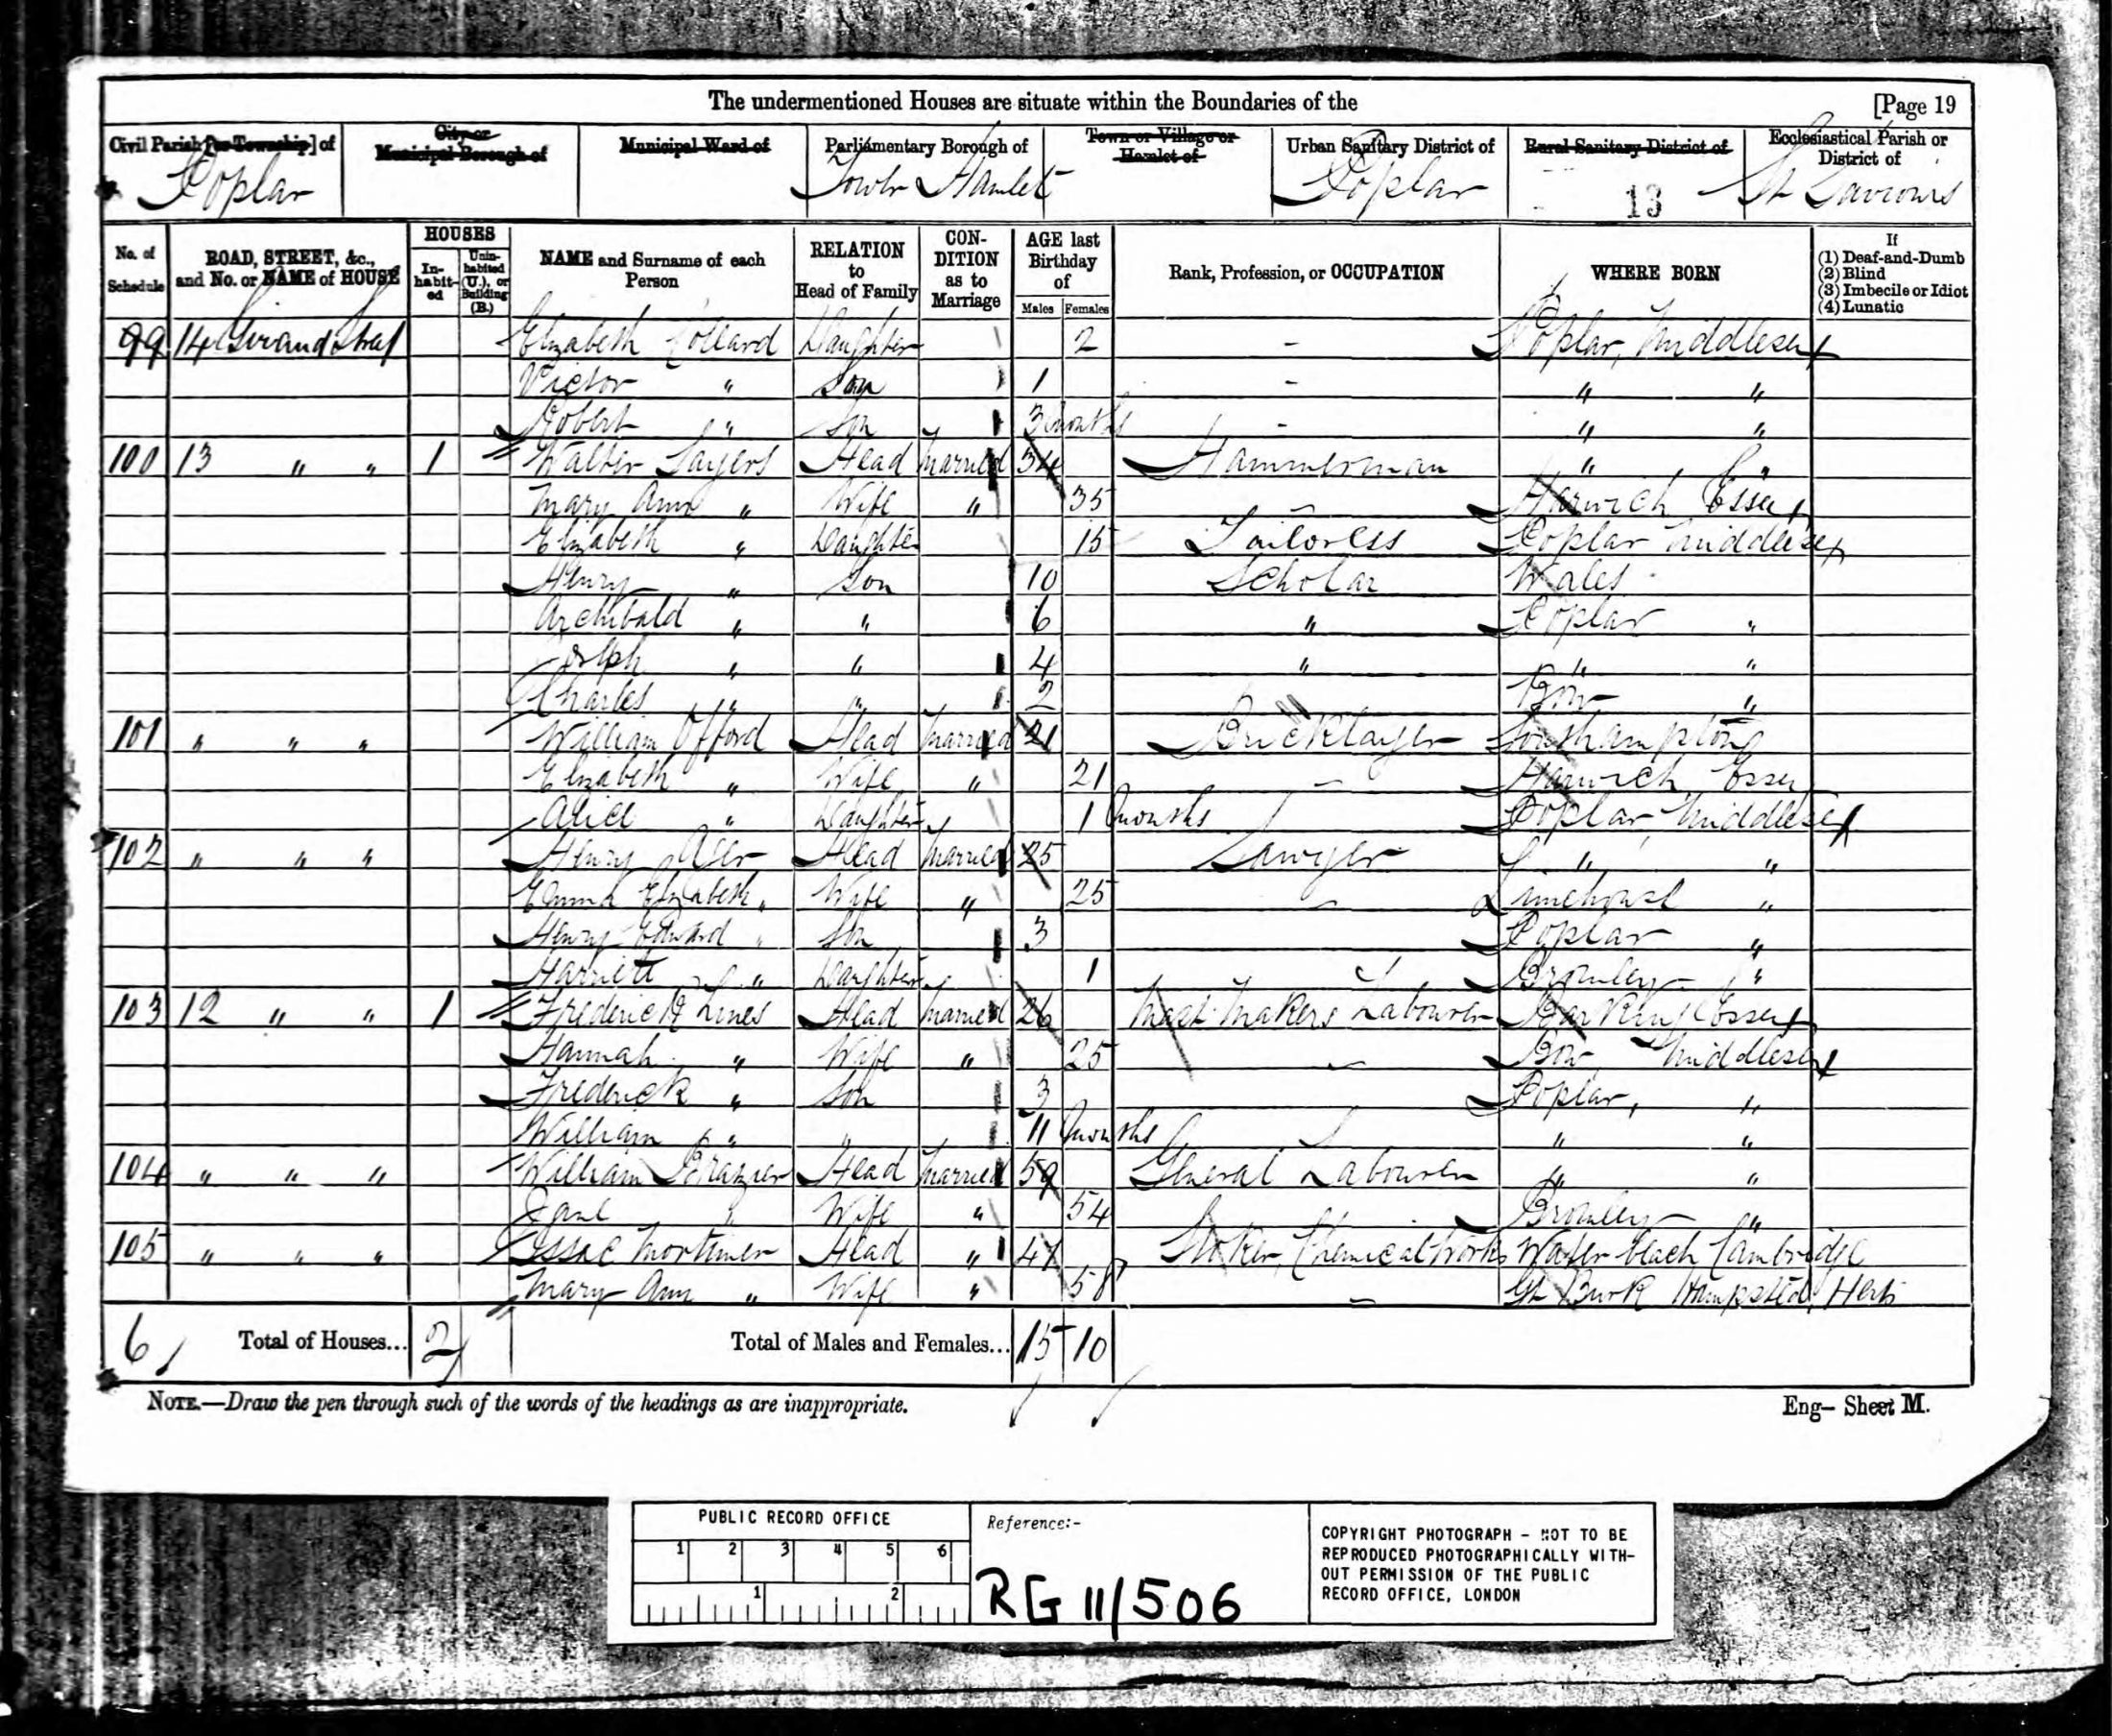 The undermentioned Houses are situate within the Boundaries of the [Page 19
Civil Parish [or Township] of City or Municipal Borough of Municipal Ward of Parliamentary Borough of Town or Village or Hamlet of Urban Sanitary District of Rural Sanitary District of Ecclesiastical Parish or District of
Poplar Tower Hamlets Poplar 13 St Saviours
No. of Schedule ROAD, STREET, &c., and No. or NAME of HOUSE HOUSES Inhabited Uninhabited (U.), or Building (B.) NAME and Surname of each Person RELATION to Head of Family CONDITION as to Marriage AGE last Birthday of Males Females Rank, Profession, or OCCUPATION WHERE BORN If (1) Deaf-and-Dumb (2) Blind (3) Imbecile or Idiot (4) Lunatic
99 14 Girand Street Elizabeth Collard Daughter 2 - Poplar, Middlesex
Victor " Son 1 - " "
Robert " Son 3 months - " "
100 13 " " 1 Walter Sayers Head Married 34 Hammerman " "
Mary Ann " Wife " 35 - Harwich Essex
Elizabeth " Daughter 15 Tailoress Poplar Middlesex
Henry " Son 10 Scholar Wales
Archibald " " 6 " Poplar "
Joseph " " 4 " " "
Charles " " 2 Bow "
101 " " " William Offord Head Married 21 Bricklayer Southampton
Elizabeth " Wife " 21 - Harwich Essex
Alice " Daughter 1 months Poplar Middlesex
102 " " " Henry Head Married 25 Sawyer " "
Emma Elizabeth " Wife " 25 - Limehouse "
Henry Edward " Son 3 Poplar "
Harriett " Daughter 1 Bromley "
103 12 " " 1 Frederick Lines Head Married 26 Mast Makers Labourer Barking Essex
Hannah " Wife " 25 - Bow Middlesex
Frederick " Son 3 Poplar, "
William " " 11 months " "
104 " " " William Brazier Head Married 59 General Labourer " "
Jane " Wife " 54 - Bromley "
105 " " " Issac Mortimer Head " 47 Stoker, Chemical Works Water beach Cambridge
Mary Ann " Wife " 58 - Gt Burk Hampsted Herts
6 Total of Houses... 2 Total of Males and Females... 15 10
NOTE.—Draw the pen through such of the words of the headings as are inappropriate. Eng— Sheet M.
PUBLIC RECORD OFFICE
1 2 3 4 5 6
1 2
Reference:-
RG 11/506
COPYRIGHT PHOTOGRAPH - NOT TO BE
REPRODUCED PHOTOGRAPHICALLY WITH-
OUT PERMISSION OF THE PUBLIC
RECORD OFFICE, LONDON